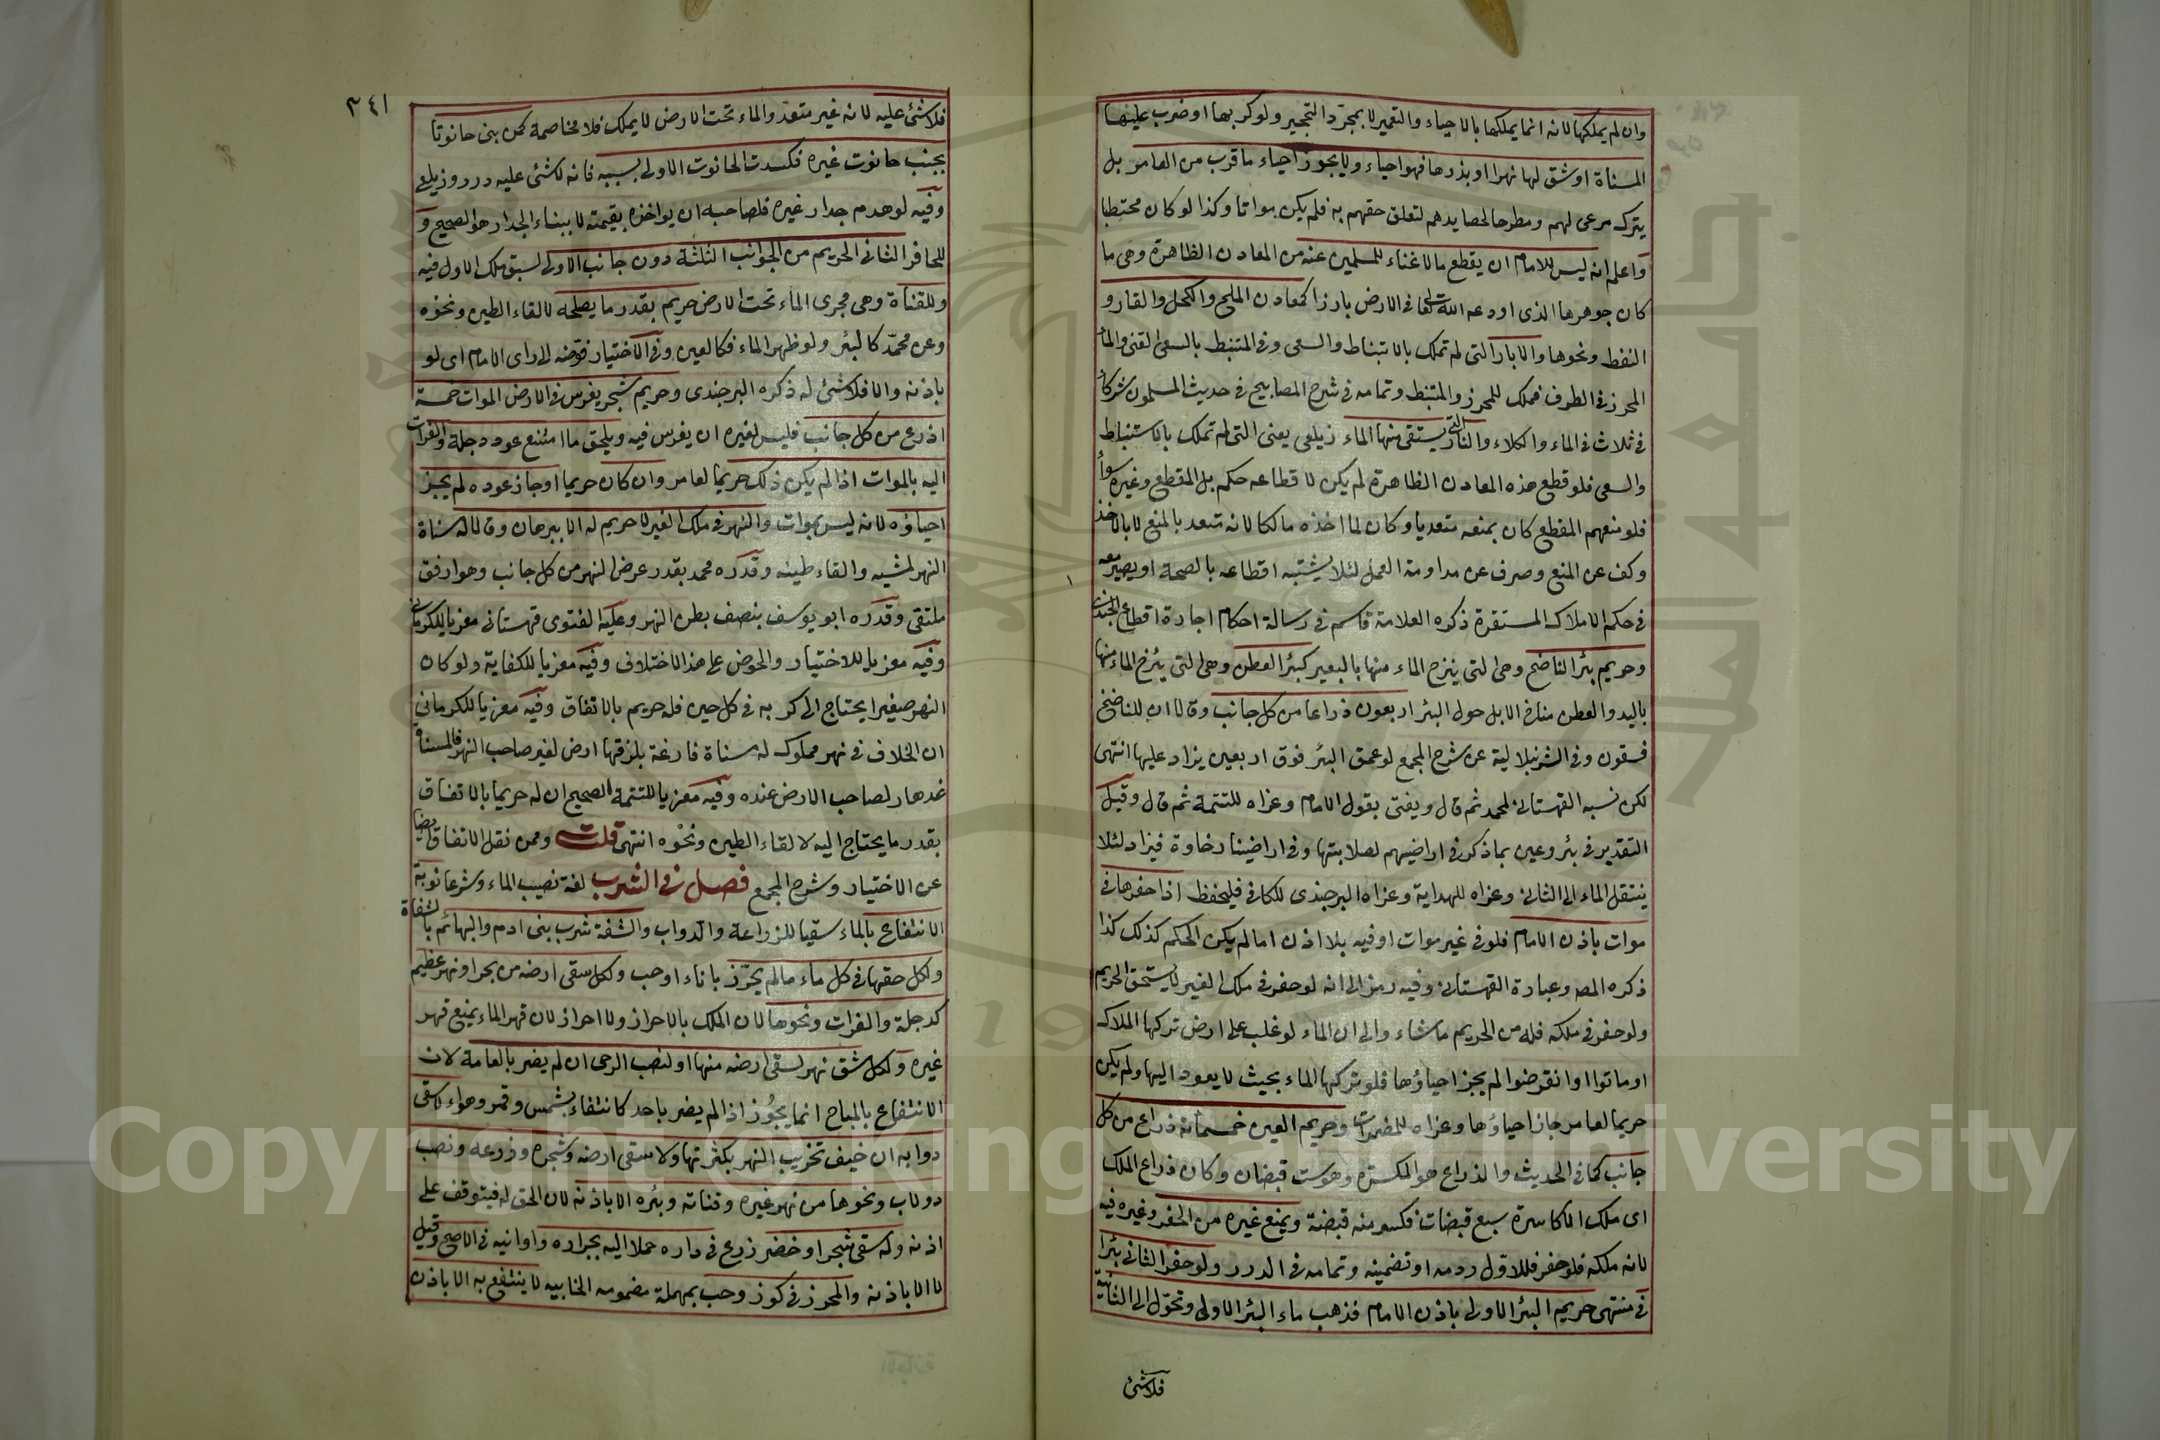 وان لم يملكها لانه انما يملكها بالاحياء والتعمير لا بمجرد التحجير ولو كربها او ضرب عليها
المسناة او شق لها نهرا او بذرها فهو احياء ولا يجوز احياء ما قرب من العامر بل
يترك مرعى لهم ومطرحا لحصايدهم لتعلق حقهم به فلم يكن مواتا وكذا لو كان محتطبا
واعلم انه ليس للامام ان يقطع ما لا غناء للمسلمين عنه من المعادن الظاهرة وهى ما
كان جوهرها الذى اودعه الله تعالى فى الارض بارزا كمعادن الملح والكحل والقار و
النفط ونحوها والابار التى لم تملك بالاستنباط والسعى وفى المستنبط بالسعى القنى والماء
المحرز فى الظرف فملك للمحرز والمستنبط وتمامه فى شرح المصابيح فى حديث المسلمون شركاء
فى ثلاث فى الماء والكلاء والنار التى يستقى منها الماء زيلعى يعنى التى لم تملك بالاستنباط
والسعى فلو قطع هذه المعادن الظاهرة لم يكن لاقطاعه حكم بل المقطع وغيره سواء
فلو منعهم المقطع كان بمنعه متعديا وكان لما اخذه مالكا لانه متعد بالمنع لا بالاخذ
وكف عن المنع وصرف عن مداومة العمل لئلا يشتبه اقطاعه بالصحة او يصير معه
فى حكم الاملاك المستقرة ذكره العلامة قاسم فى رسالة احكام اجارة اقطاع الجندى
وحريم بئر الناضح وهى التى ينزح الماء منها بالبعير كبئر العطن وهى التى ينزح الماء منها
باليد والعطن مناخ الابل حول البئر اربعون ذراعا من كل جانب وقالا ان للناضح
فستون وفى الشرنبلالية عن شرح المجمع لو عمق البئر فوق اربعين يزاد عليها انتهى
لكن نسبه القهستانى لمحمد ثم قال ويفتى بقول الامام وعزاه للتتمة ثم قال وقيل
التقدير فى بئر وعين بما ذكر فى اراضيهم لصلابتها وفى اراضينا رخاوة فيزاد لئلا
ينتقل الماء الى الثانى وعزاه للهداية وعزاه البرجندى للكافى فليحفظ اذا حفرها فى
موات باذن الامام فلو فى غير موات او فيه بلا اذن امام لم يكن الحكم كذلك كذا
ذكره المصـ وعبارة القهستانى وفيه رمز الى انه لو حفر فى ملك الغير لا يستحق الحريم
ولو حفر فى ملكه فله من الحريم ما شاء والى ان الماء لو غلب على ارض تركها الملاك
او ماتوا او انقرضوا لم يجز احياؤها فلو تركها الماء بحيث لا يعود اليها ولم يكن
حريما لعامر جاز احياؤها وعزاه للمضمرات وحريم العين خمسمائة ذراع من كل
جانب كما فى الحديث والذراع هو المكسرة وهو ست قبضات وكان ذراع الملك
اى ملك الاكاسرة سبع قبضات فكسر منه قبضة ويمنع غيره من الحفر وغيره فيه
لانه ملكه فلو حفر فللاول ردمه او تضمينه وتمامه فى الدرر ولو حفر الثانى بئرا
فى منتهى حريم البئر الاولى باذن الامام فذهب ماء البئر الاولى وتحول الى الثانية
فلا شئ
٣٤١
فلا شئ عليه لانه غير متعد والماء تحت الارض لا يملك فلا مخاصمة كمن بنى حانوتا
بجنب حانوت غيره فكسدت الحانوت الاولى بسببه فانه لا شئ عليه درر وزيلعى
وفيه لو هدم جدار غيره فلصاحبه ان يواخذه بقيمته لا ببناء الجدار هو الصحيح و
للحافر الثانى الحريم من الجوانب الثلثة دون جانب الاولى لسبق ملك الاول فيه
وللقناة وهى مجرى الماء تحت الارض حريم بقدر ما يصلحه لالقاء الطين ونحوه
وعن محمد كالبئر ولو ظهر الماء فكالعين وفى الاختيار فوضه لراى الامام اى لو
باذنه والا فلا شئ له ذكره البرجندى وحريم شجر يغرس فى الارض الموات خمسة
اذرع من كل جانب فليس لغيره ان يغرس فيه ويلحق ما امتنع عود دجلة والفرات
اليه بالموات اذا لم يكن ذلك حريما لعامر وان كان حريما او جاز عوده لم يجز
احياؤه لانه ليس بموات والنهر فى ملك الغير لا حريم له الا ببرهان وقالا له مسناة
النهر لمشيه والقاء طينه وقدره محمد بقدر عرض النهر من كل جانب وهو ارفق
ملتقى وقدره ابو يوسف بنصف بطن النهر وعليه الفتوى قهستانى معزيا للكرمانى
وفيه معزيا للاختيار والحوض على هذا الاختلاف وفيه معزيا للكفاية ولو كان
النهر صغيرا يحتاج الى كربه فى كل حين فله حريم بالاتفاق وفيه معزيا للكرمانى
ان الخلاف فى نهر مملوك له مسناة فارغة بلزقها ارض لغير صاحب النهر فالمسناة
عندها لصاحب الارض عنده وفيه معزيا للتتمة الصحيح ان له حريما بالاتفاق
بقدر ما يحتاج اليه لالقاء الطين ونحوه انتهى قلت وممن نقل الاتفاق ايضا
عن الاختيار وشرح المجمع فصل فى الشرب لغة نصيب الماء وشرعا نوبة
الانتفاع بالماء سقيا للزراعة والدواب والشفة شرب بنى ادم والبهائم بالشفاة
ولكل حقها فى كل ماء ما لم يحرز باناء او حب ولكل سقى ارضه من بحر او نهر عظيم
كدجلة والفرات ونحوها لان الملك بالاحراز ولا احراز لان قهر الماء يمنع قهر
غيره ولكل شق نهر لسقى ارضه منها او لنصب الرحى ان لم يضر بالعامة لان
الانتفاع بالمباح انما يجوز اذا لم يضر باحد كانتفاء بشمس وقمر وهواء لا سقى
دوابه ان خيف تخريب النهر بكثرتها ولا سقى ارضه وشجره وزرعه ونصب
دولاب ونحوها من نهر غيره وقناته وبئره الا باذنه لان الحق له فيتوقف على
اذنه وله سقى شجر او خضر زرع فى داره حملا اليه بجراره واوانيه فى الاصح وقيل
لا الا باذنه والمحرز فى كوز وحب بمهملة مضمومة الخابيه لا ينتفع به الا باذن
Copyright © King Saud University